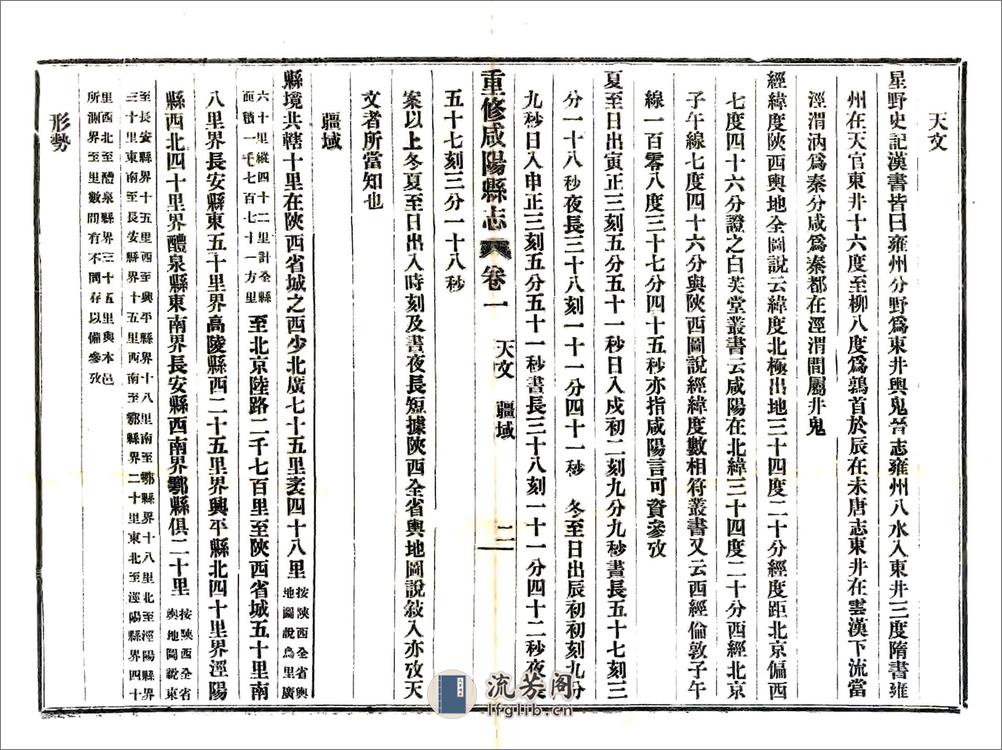 天文
星野史記漢書皆曰雍州分野爲東井輿鬼晉志雍州八水入東井三度隋書雍
州在天官東井十六度至柳八度爲鶉首於辰在未唐志東井在雲漢下流當
涇渭汭爲秦分咸爲秦都在涇渭間屬井鬼
經緯度陝西輿地全圖說云緯度北極出地三十四度二十分經度距北京偏西
七度四十六分證之白芙堂叢書云咸陽在北緯三十四度二十分西經北京
子午線七度四十六分與陝西圖說經緯度數相符叢書又云西經倫敦子午
線一百零八度三十七分四十五秒亦指咸陽言可資參攷
夏至日出寅正三刻五分五十一秒日入戍初二刻九分九秒晝長五十七刻三
分一十八秒夜長三十八刻一十一分四十一秒　冬至日出辰初初刻九分
九秒日入申正三刻五分五十一秒晝長三十八刻一十一分四十二秒夜長
五十七刻三分一十八秒
案以上冬夏至日出入時刻及晝夜長短據陝西全省輿地圖說敍入亦攷天
文者所當知也
重修咸陽縣志　卷一　天文　疆域　二
疆域
縣境共轄十里在陝西省城之西少北廣七十五里袤四十八里按陝西全省輿
地圖說爲里廣
六十里縱四十二里計全縣
面積一千七百七十一方里至北京陸路二千七百里至陝西省城五十里南
八里界長安縣東五十里界高陵縣西二十五里界興平縣北四十里界涇陽
縣西北四十里界醴泉縣東南界長安縣西南界鄠縣俱二十里按陝西全省
輿地圖說東
至長安縣界十五里西至興平縣界十八里南至鄠縣界十八里北至涇陽縣界
三十里東南至長安縣界十五里西南至鄠縣界二十里東北至涇陽縣界四十
里西北至醴泉縣界三十五里與本邑
所測界至里數間有不同存以備參攷
形勢
流芳阁
lfglib.cn